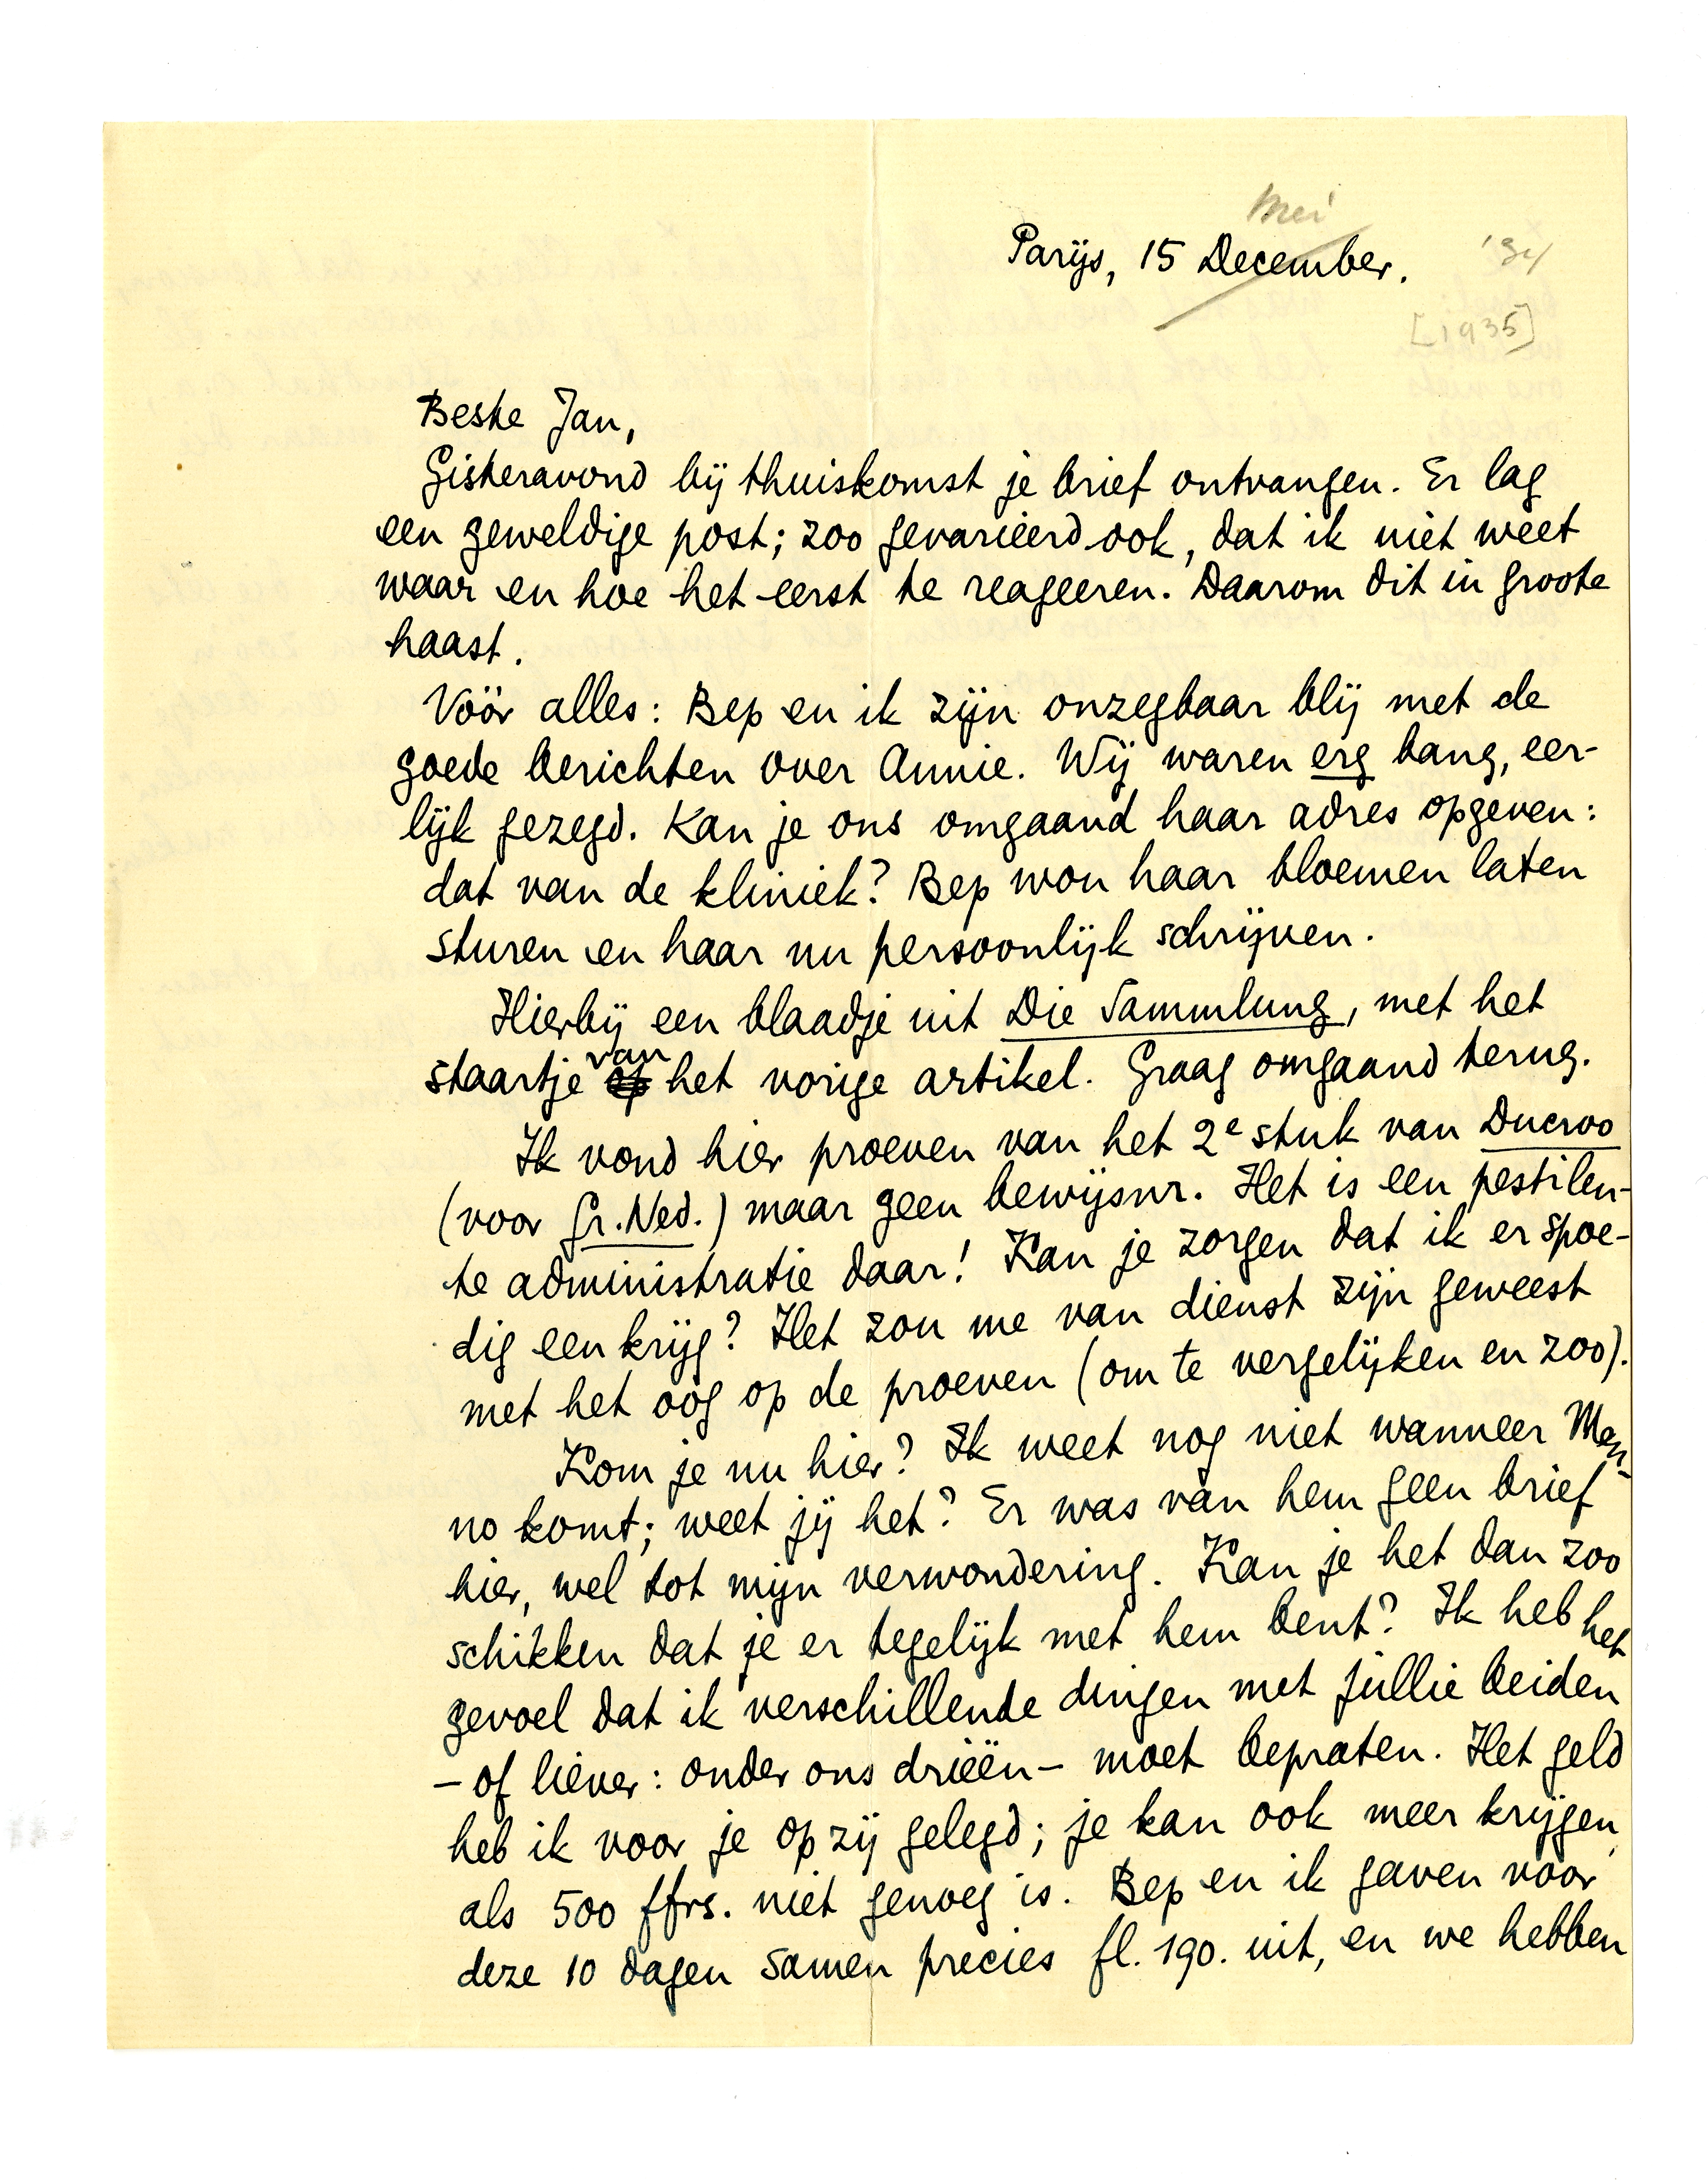 Mei
Parijs, 15 December. '34
[1935]
Beste Jan,
Gisteravond bij thuiskomst je brief ontvangen. Er lag
een geweldige post; zoo gevarieerd ook, dat ik niet weet
waar en hoe het eerst te reageeren. Daarom dit in groote
haast.
Vóór alles: Bep en ik zijn onzegbaar blij met de
goede berichten over Annie. Wij waren erg bang, eer-
lijk gezegd. Kan je ons omgaand haar adres opgeven:
dat van de kliniek? Bep wou haar bloemen laten
sturen en haar nu persoonlijk schrijven.
Hierbij een blaadje uit Die Sammlung, met het
staartje op van het vorige artikel. Graag omgaand terug.
Ik vond hier proeven van het 2e stuk van Ducroo
(voor Gr. Ned.) maar geen bewijsnr. Het is een pestilen-
te administratie daar! Kan je zorgen dat ik er spoe-
dig een krijg? Het zou me van dienst zijn geweest
met het oog op de proeven (om te vergelijken en zoo).
Kom je nu hier? Ik weet nog niet wanneer Men-
no komt; weet jij het? Er was van hem geen brief
hier, wel tot mijn verwondering. Kan je het dan zoo
schikken dat je er tegelijk met hem bent? Ik heb het
gevoel dat ik verschillende dingen met jullie beiden
– of liever: onder ons drieën – moet bepraten. Het geld
heb ik voor je op zij gelegd; je kan ook meer krijgen,
als 500 ffrs. niet genoeg is. Bep en ik gaven voor
deze 10 dagen samen precies fl. 190. uit, en we hebben